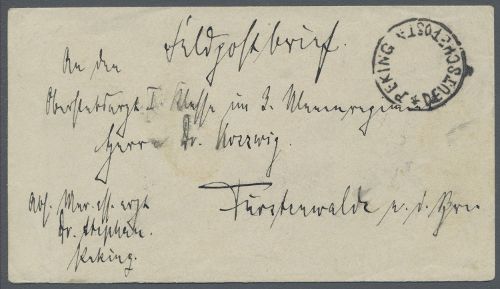 Feldpostbrief.
PEKING DEUTSCHE POST
An den
Oberstabsarzt I. Klasse im 3. Ulanenregiment
Herrn Dr.
Fürstenwalde a. d. Spree
Abs. Mar. Ass. arzt
Dr. Stephan.
Peking.